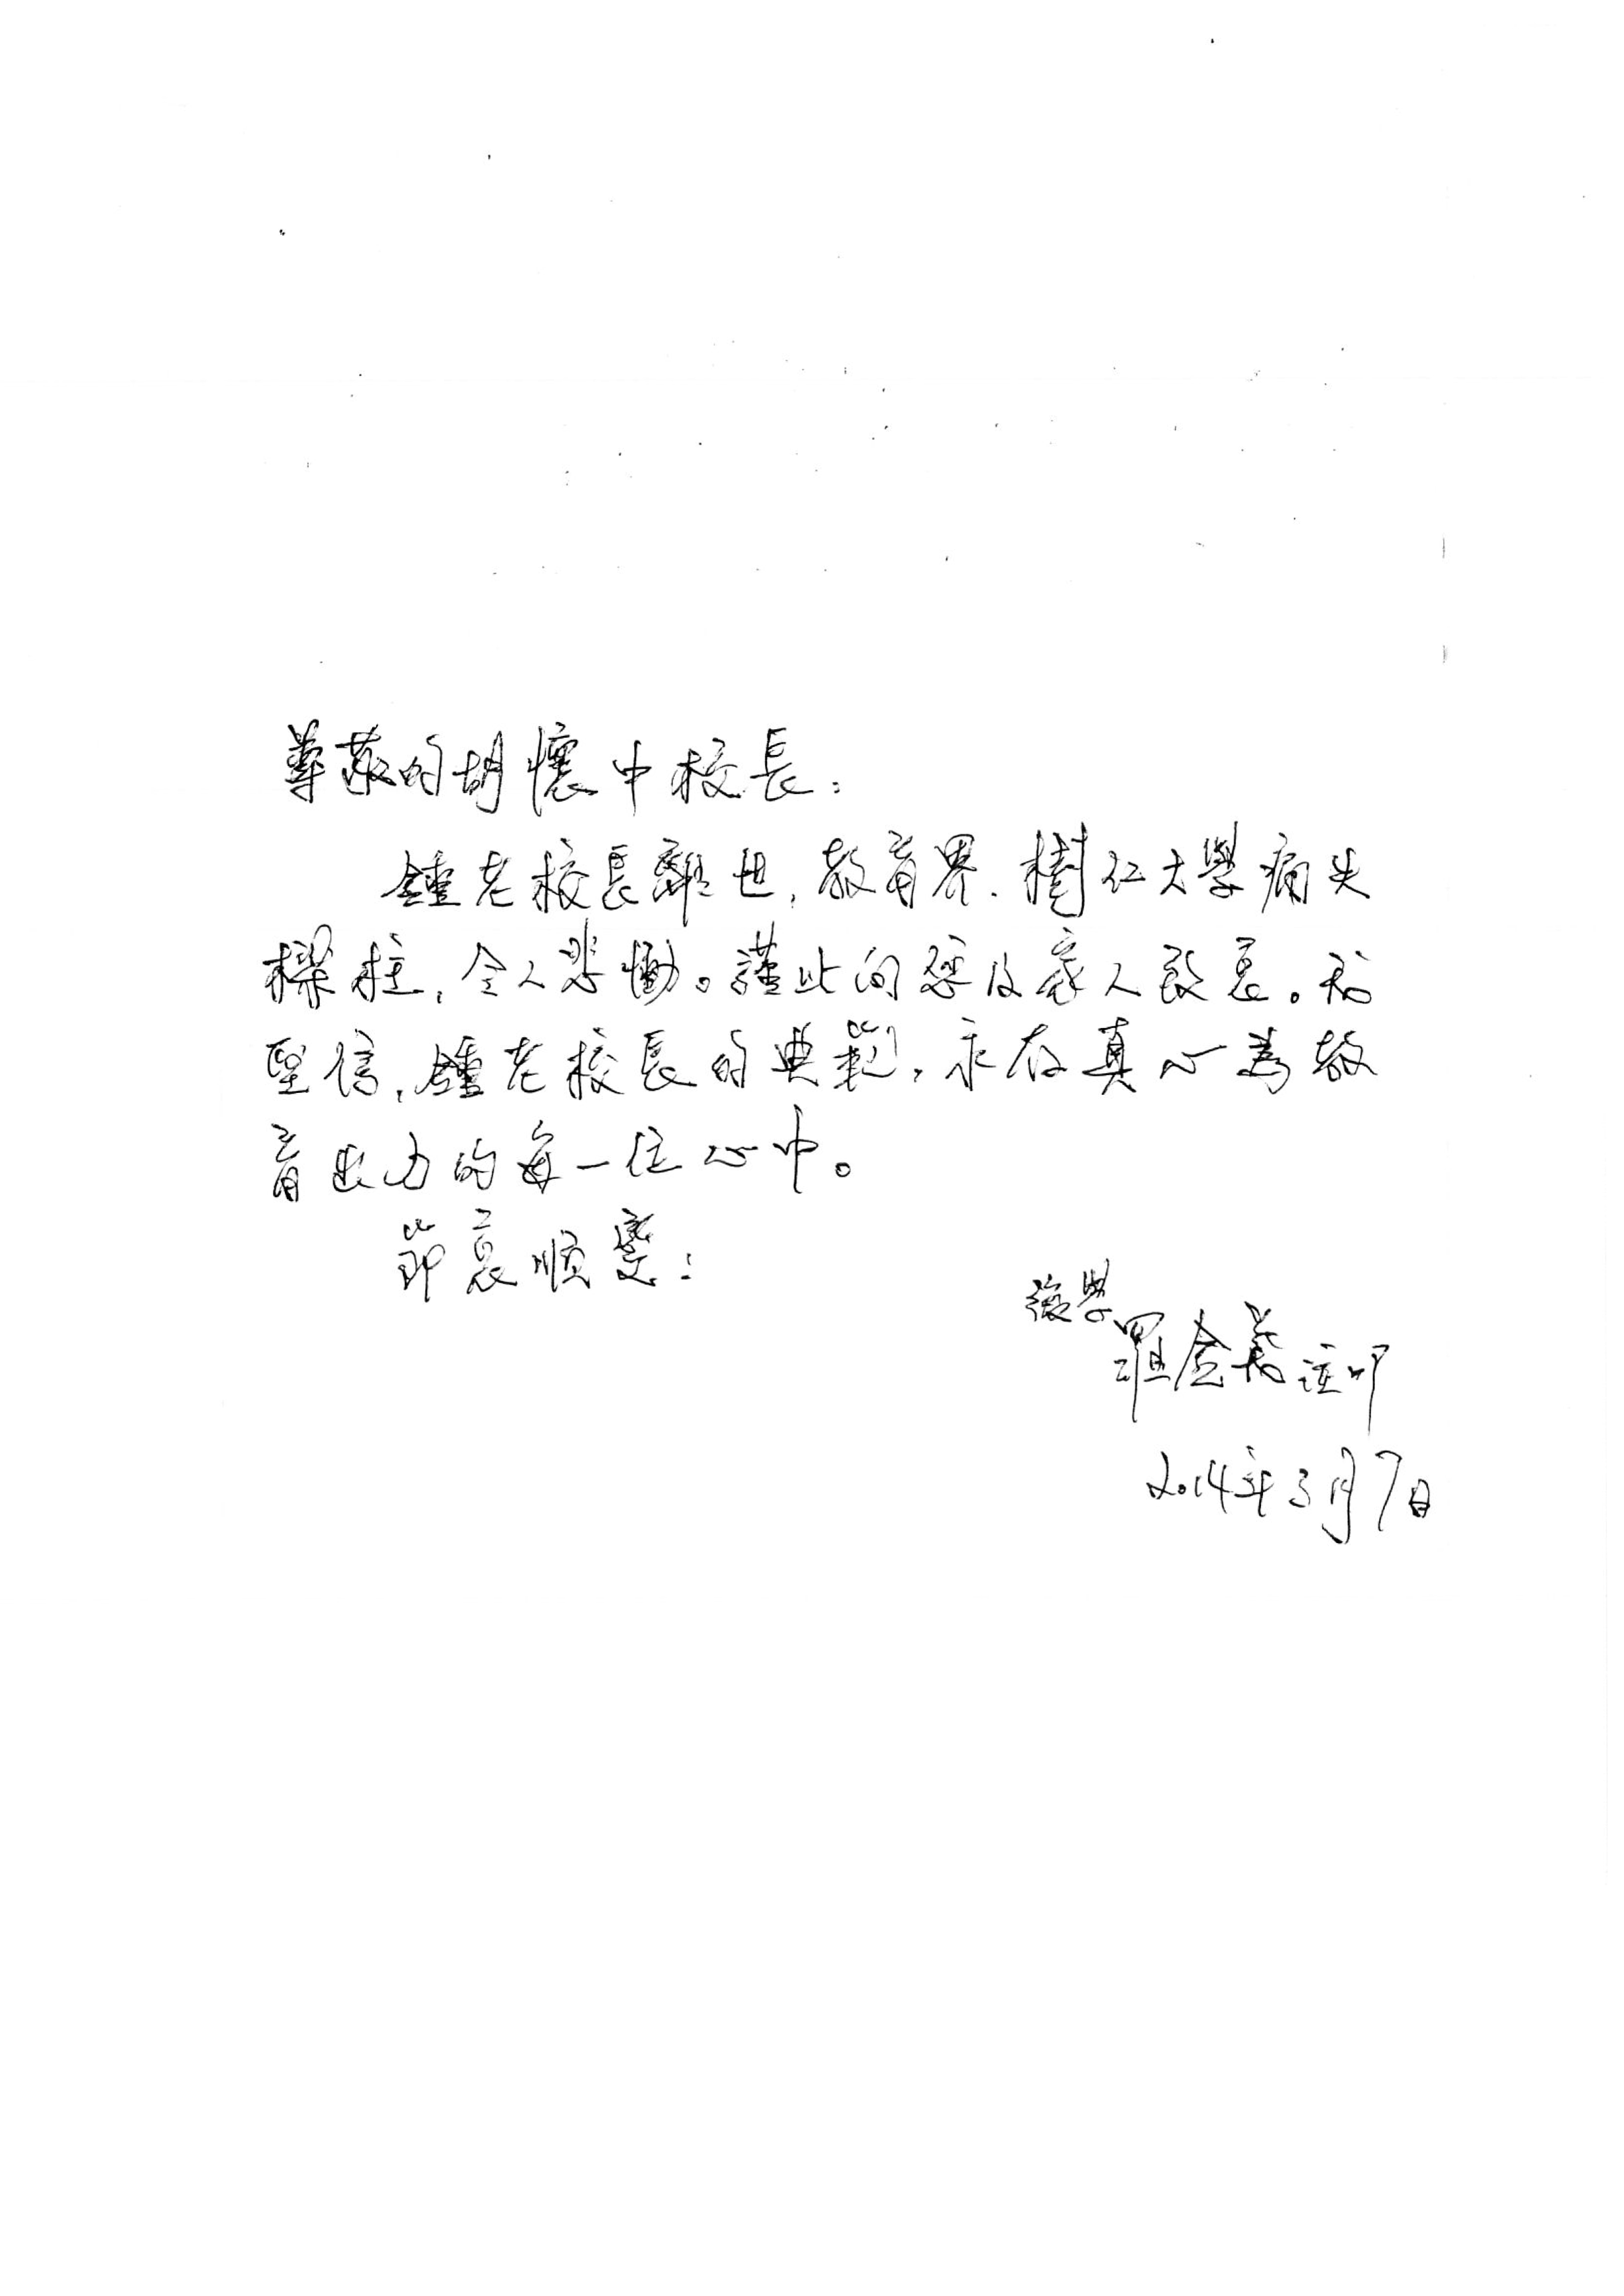 尊敬的胡懷中校長：
鍾老校長離世，教育界、樹仁大學痛失
樑柱，令人悲慟。謹此向您及家人致哀。我
堅信，鍾老校長的典範，永存真心為教
育出力的每一位心中。
節哀順變！
後學
羅金義謹叩
2014年3月7日